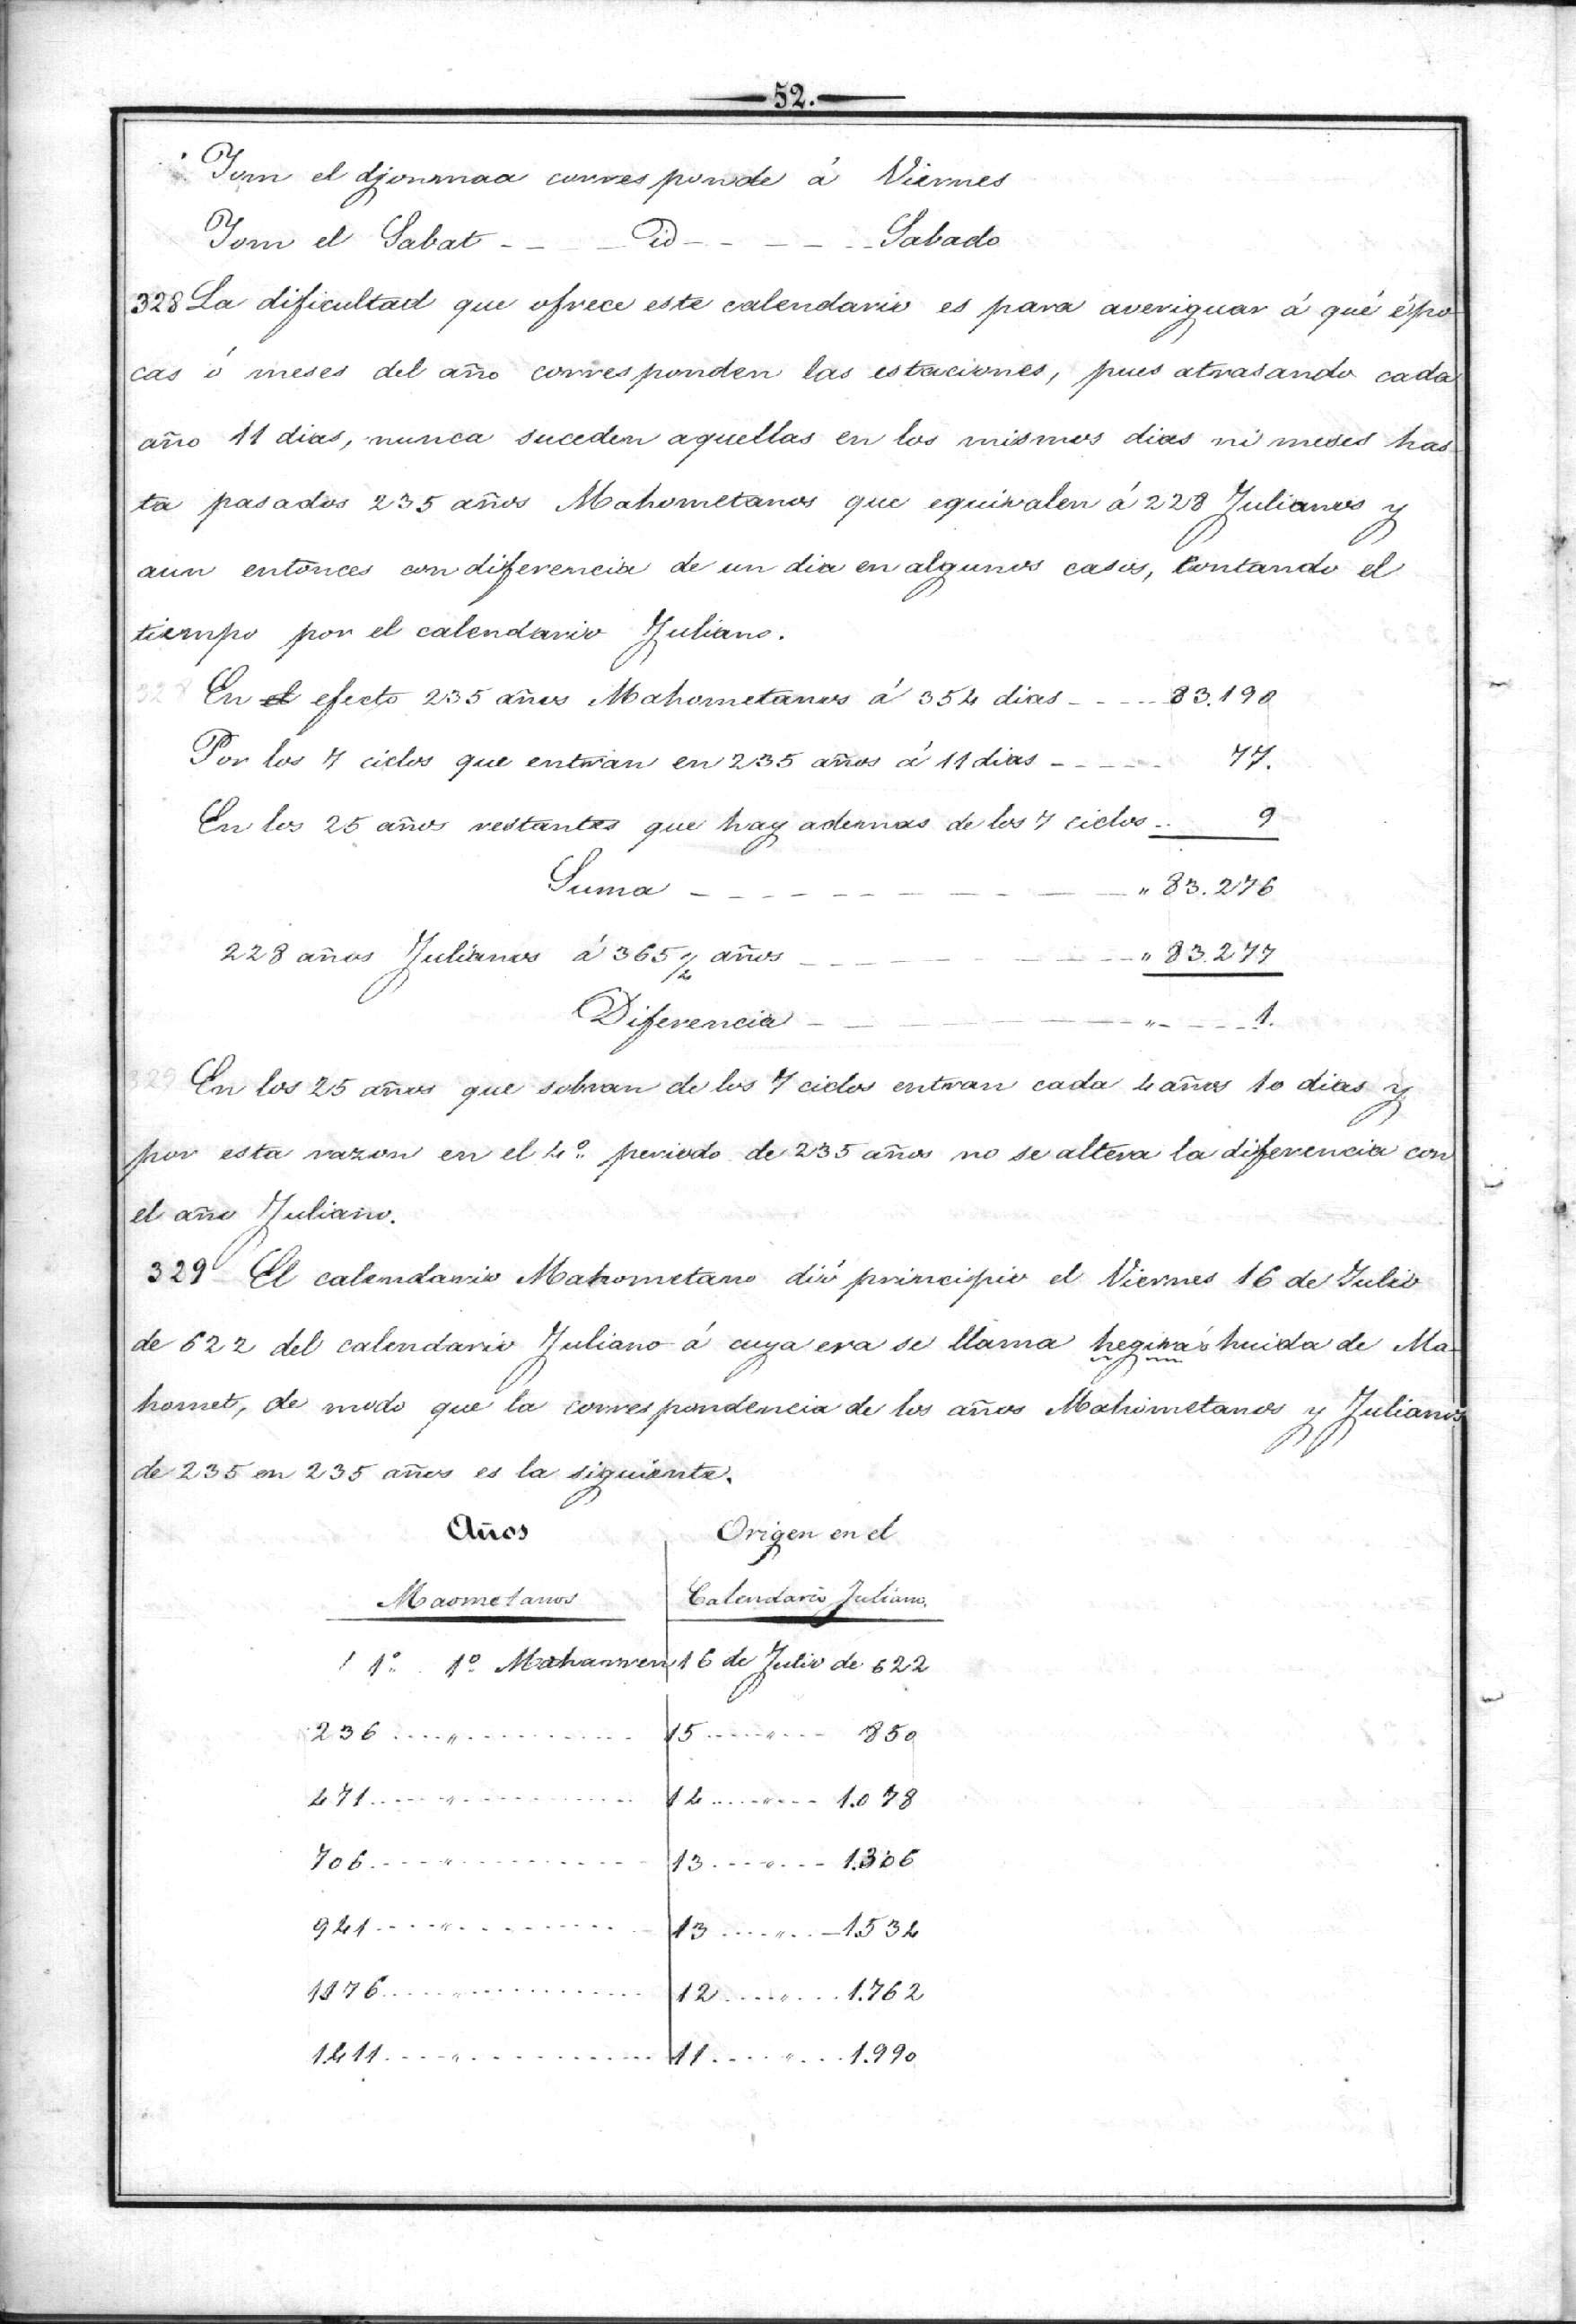 52.
Jom el djonmaa corresponde á Viernes
Jom el Sabat - - - - Id - - - - - Sabado
328 La dificultad que ofrece este calendario es para averiguar á qué épo-
cas ó meses del año corresponden las estaciones, pues atrasando cada
año 11 dias, nunca suceden aquellas en los mismos dias ni meses has-
ta pasados 235 años Mahometanos que equivalen á 228 Julianos y
aun entonces con diferencia de un dia en algunos casos, contando el
tiempo por el calendario Juliano.
En el efecto 235 años Mahometanos á 354 dias - - - - 83.190
Por los 7 ciclos que entran en 235 años á 11 dias - - - - - 77.
En los 25 años restantes que hay ademas de los 7 ciclos - 9
Suma - - - - - - - - - " 83.276
228 años Julianos á 365 1/4 años - - - - - - - " 83.277
Diferencia - - - - - - " - - - - 1.
En los 25 años que sobran de los 7 ciclos entran cada 4 años 10 dias y
por esta razon en el 4º periodo de 235 años no se altera la diferencia con
el año Juliano.
329 El calendario Mahometano dió principio el Viernes 16 de Julio
de 622 del calendario Juliano á cuya era se llama hegira ó huida de Ma-
homet, de modo que la correspondencia de los años Mahometanos y Julianos
de 235 en 235 años es la siguiente.
Años Origen en el
Maometanos Calendario Juliano.
1º 1º Mahanren 16 de Julio de 622
236 .... " .......... 15 .... " ... 850
471 .... " .......... 14 .... " ... 1.078
706 .... " .......... 13 .... " ... 1.306
941 .... " .......... 13 .... " ... 1534
1176 .... " .......... 12 .... " ... 1.762
1411 .... " .......... 11 .... " ... 1.990